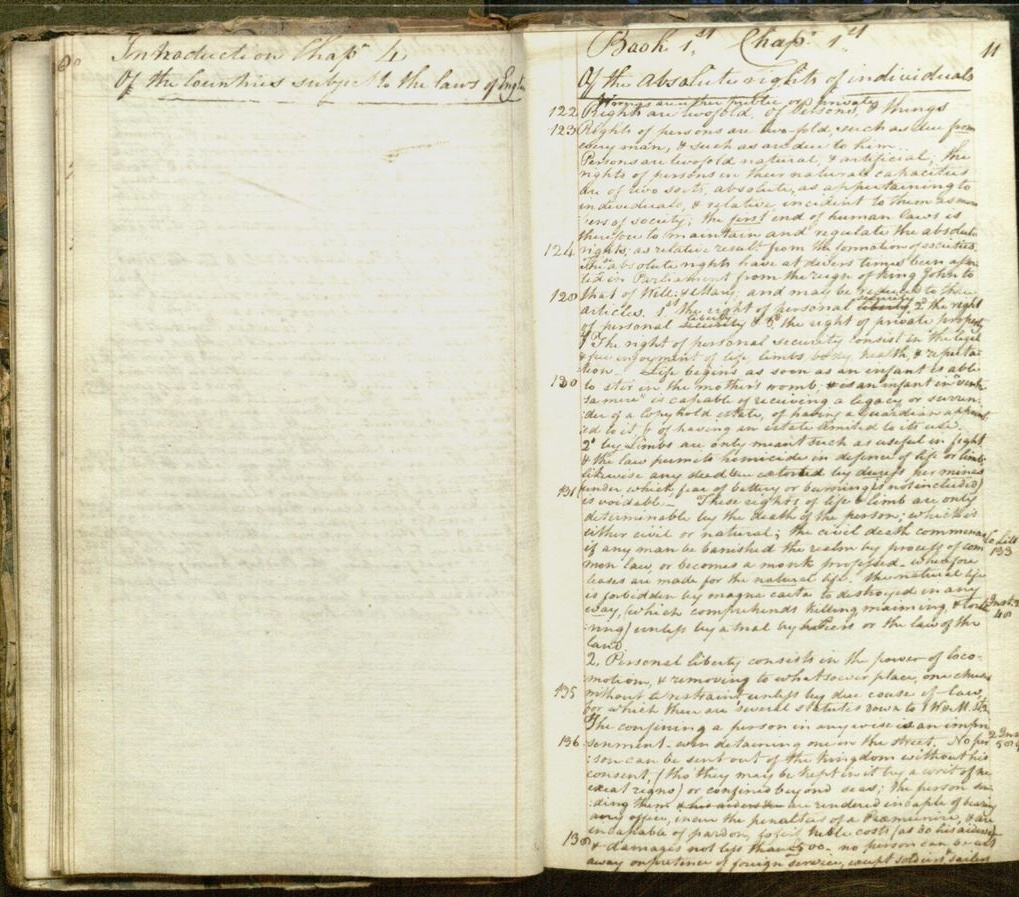 Introduction Chapr 4
Of the Countries subject to the laws of Engld
Book 1st Chapr 1st 11
Of the absolute rights of individuals
Wrongs are either public or private
122 Rights are twofold, of Persons, & things
123 Rights of persons are two-fold, such as due from
every man, & such as are due to him..
Persons are twofold natural, & artificial; The
rights of persons in their natural capacities
are of two sorts, absolute, as appertaining to
individuals, & relative, incident to them as mem
bers of society; the first end of human laws is
therefore to maintain and regulate the absolute
124 rights, as relative result from the formation of societies.
The absolute rights have at divers times been
in Parliament from the reign of King John to
128 that of Will: & Mary and may be reduced to three
articles. 1st the right of personal security 2d the right
of personal liberty & 3d the right of private property
1 The right of personal security consist in the legal
& free enjoyment of life, limbs body, health, & reputa
tion. Life begins as soon as an infant is able
130 to stir in the mother's womb. an infant in "ventre
sa mere" is capable of receiving a legacy or surren:
der of a Copyhold estate, of having a guardian appoint
ed to it & of having an estate limited to its use.
2d by Limbs are only meant such as useful in fight
& the law permits homicide in defence of life or limb
likewise any deed extorted by duress per minas
131 (under which, fear of battery or burning is not included)
is voidable. These rights of life & limb are only
determinable by the death of the person; which is
either civil or natural; the civil death commences
if any man be banished the realm by process of com Co Litt
mon law, or becomes a monk professed. wherefore 133
leases are made for the natural life. The natural life
is forbidden by magna carta to destroyed in any
way, (which comprehends killing, maiming, & tortu Inst. 2
:ring) unless by a trial by or the law of the 48
land.
2. Personal liberty consists in the power of loco-
motion, & removing to whatsoever place, one chuses
135 without restraint unless by due course of law,
for which there are several statutes down to 1 W & M. St 2
The confining a person in any wise is an impri
136 sonment. even detaining one in the street. No per 2 Inst
:son can be sent out of the kingdom without his 589
consent, (tho' they may be kept in it by a writ of ne
exeat regno) or confined beyond seas; the person sen
:ding them are rendered incapable of bearing
any office, incur the penalties of a Præmunire, & are
incapable of pardon, treble costs (as do his aiders)
138 & damages not less than 500. no person can be sent
away on pretence of foreign service, except soldiers sailors